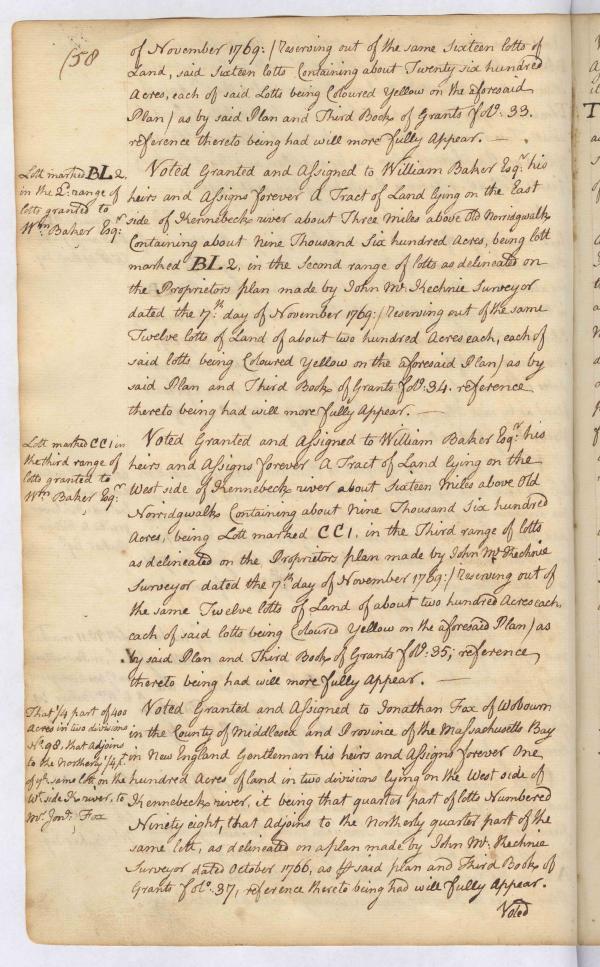 158
of November 1769:/ Reserving out of the same Sixteen lotts of
Land, said Sixteen lotts Containing about Twenty six hundred
Acres, each of said Lotts being Coloured Yellow on the aforesaid
Plan/ as by said Plan and Third Book of Grants fol.o 33.
reference thereto being had will more fully Appear. —
Lott marked BL 2.
in the 2d. range of
lotts granted to
Wm. Baker Esqr.
Voted Granted and Assigned to William Baker Esqr. his
heirs and Assigns forever A Tract of Land lying on the East
side of Kennebeck river about Three Miles above Old Norridgwalk
Containing about Nine Thousand Six hundred Acres, being lott
marked BL 2, in the Second range of lotts as delineated on
the Proprietors plan made by John Mc. Kechnie Surveyor
dated the 17th. day of November 1769:/ Reserving out of the same
Twelve lotts of Land of about two hundred Acres each, each of
said lotts being Coloured Yellow on the aforesaid Plan/ as by
said Plan and Third Book of Grants fol.o 34. reference
thereto being had will more fully Appear. —
Lott marked CC1 in
the third range of
lotts granted to
Wm. Baker Esqr.
Voted Granted and Assigned to William Baker Esqr. his
heirs and Assigns forever A Tract of Land lying on the
West side of Kennebeck river about Sixteen Miles above Old
Norridgwalk Containing about Nine Thousand Six hundred
Acres, being Lott marked CC1. in the Third range of lotts
as delineated on the Proprietors plan made by John Mc. Kechnie
Surveyor dated the 17th. day of November 1769:/ Reserving out of
the same Twelve lotts of Land of about two hundred Acres each,
each of said lotts being Coloured Yellow on the aforesaid Plan/ as
by said Plan and Third Book of Grants fol.o 35, reference
thereto being had will more fully Appear. —
That 1/4 part of 400
Acres in two divisions
No. 98, that adjoins
to the Northerly 1/4 pt.
of ye. same lott on the
Wt. side K. river, to
Mr. Jont. Fox
Voted Granted and Assigned to Jonathan Fox of Wobourn
in the County of Middlesex and Province of the Massachusetts Bay
in New England Gentleman his heirs and Assigns forever One
hundred Acres of land in two divisions lying on the West side of
Kennebeck river, it being that quarter part of lotts Numbered
Ninety eight, that Adjoins to the Northerly quarter part of the
same lott, as delineated on a plan made by John Mc. Kechnie
Surveyor dated October 1766, as ⅌ said plan and Third Book of
Grants fol.o 37, reference thereto being had will fully Appear.
Voted